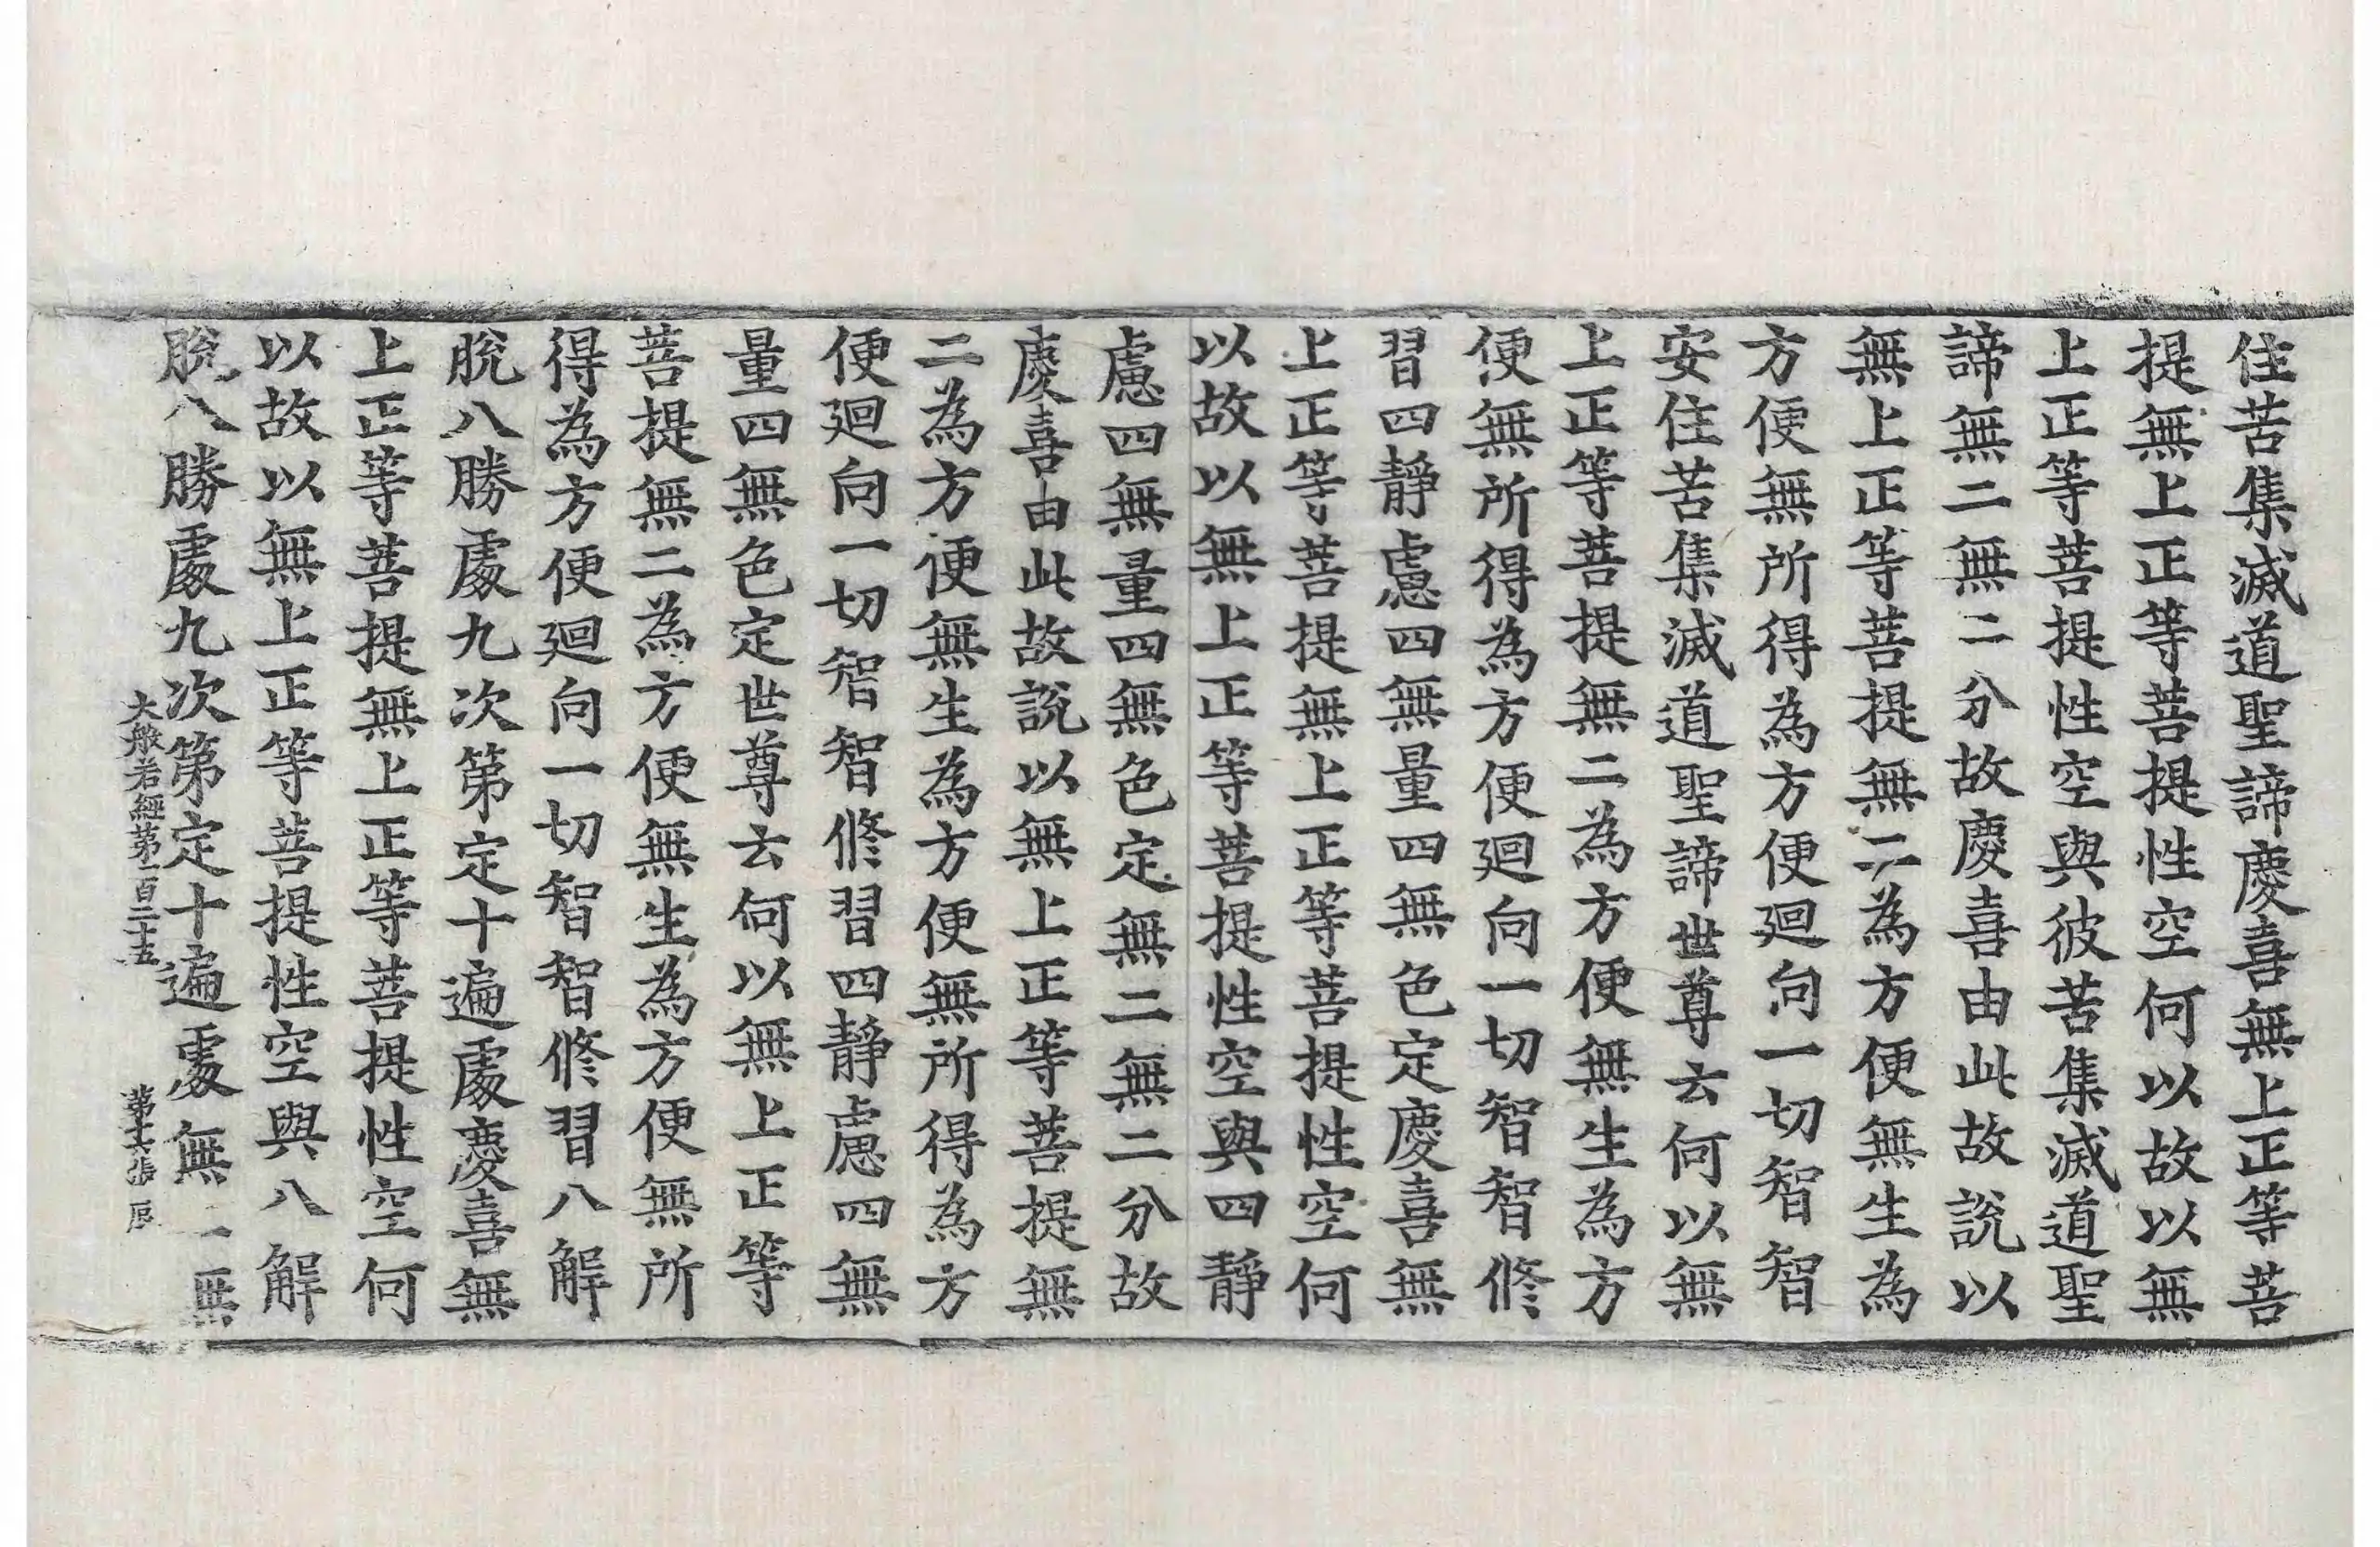 住苦集滅道聖諦慶喜無上正等菩
提無上正等菩提性空何以故以無
上正等菩提性空與彼苦集滅道聖
諦無二無二分故慶喜由此故說以
無上正等菩提無二為方便無生為
方便無所得為方便迴向一切智智
安住苦集滅道聖諦世尊云何以無
上正等菩提無二為方便無生為方
便無所得為方便迴向一切智智修
習四靜慮四無量四無色定慶喜無
上正等菩提無上正等菩提性空何
以故以無上正等菩提性空與四靜
慮四無量四無色定無二無二分故
慶喜由此故說以無上正等菩提無
二為方便無生為方便無所得為方
便迴向一切智智修習四靜慮四無
量四無色定世尊云何以無上正等
菩提無二為方便無生為方便無所
得為方便迴向一切智智修習八解
脫八勝處九次第定十遍處慶喜無
上正等菩提無上正等菩提性空何
以故以無上正等菩提性空與八解
脫八勝處九次第定十遍處無二無
大般若經第一百二十五 第十六張 辰